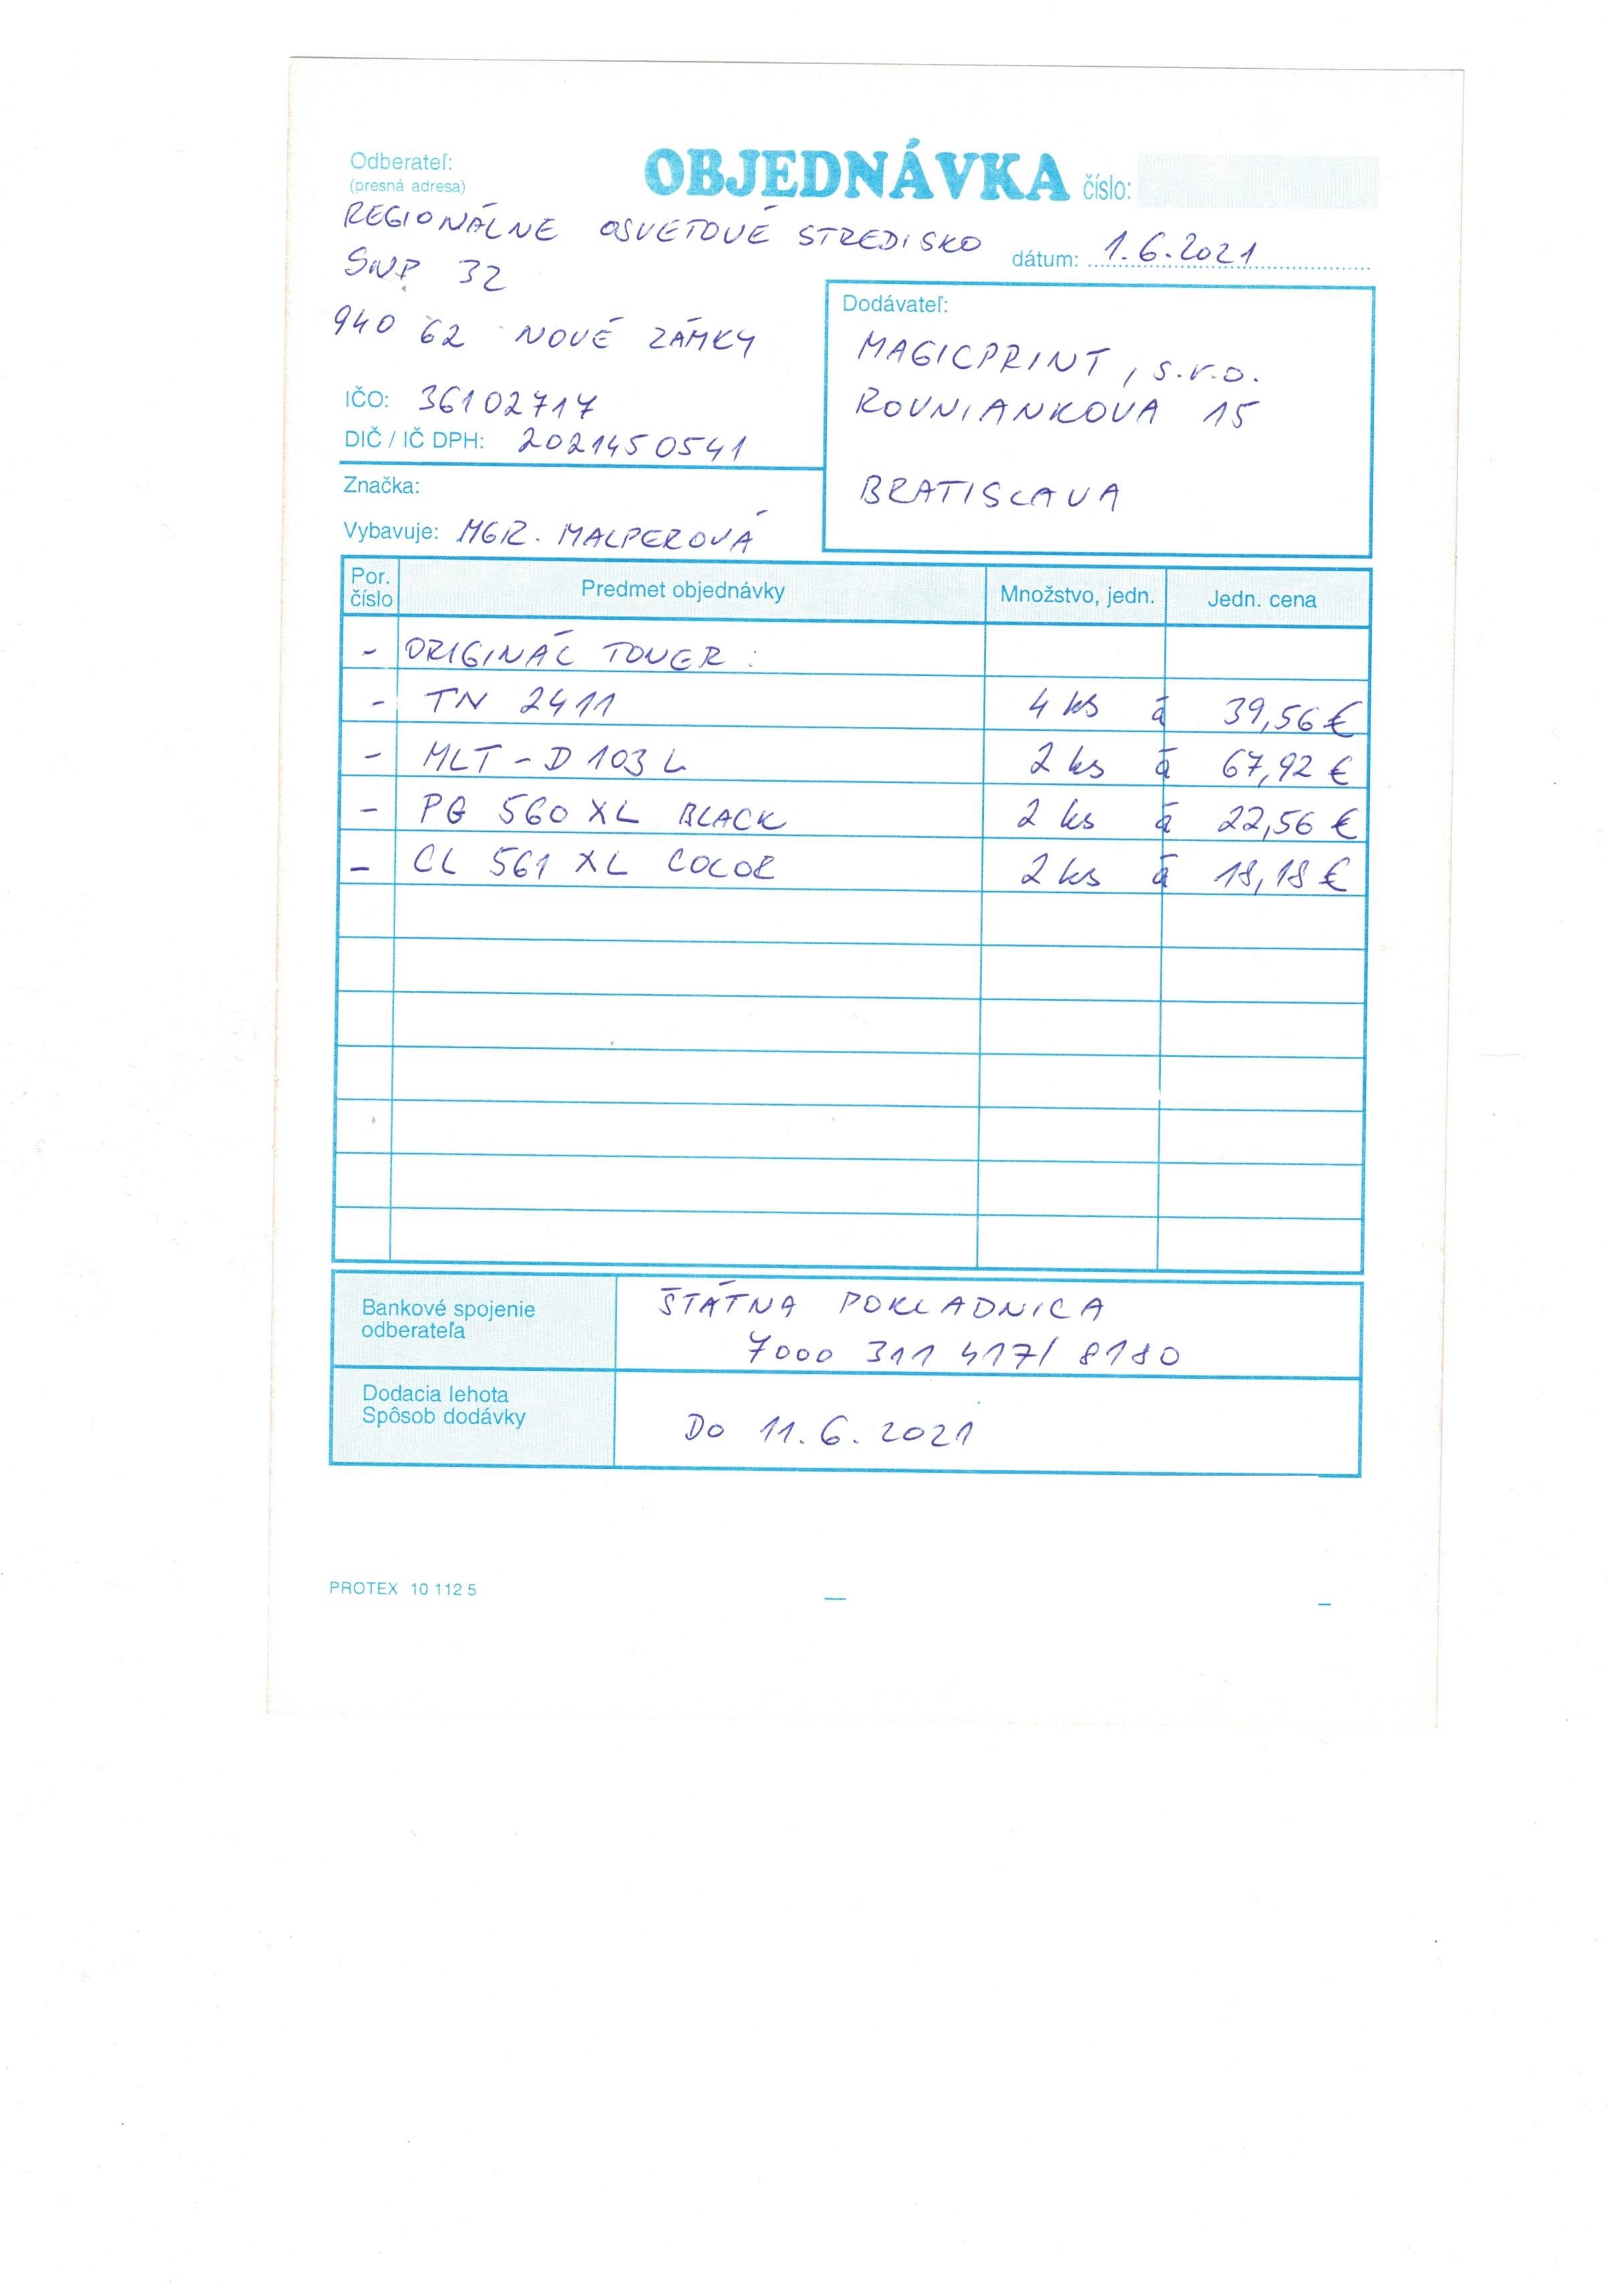 Odberateľ:
(presná adresa)
OBJEDNÁVKA číslo:
REGIONÁLNE OSVETOVÉ STREDISKO
dátum: 1.6.2021
SNP 32
940 62 NOVÉ ZÁMKY
IČO: 36102717
DIČ / IČ DPH: 2021450541
Značka:
Vybavuje: MGR. MALPEROVÁ
Dodávateľ:
MAGICPRINT, s.r.o.
ROVNIANKOVA 15
BRATISLAVA
Por. číslo Predmet objednávky Množstvo, jedn. Jedn. cena
- ORIGINÁL TONER :
- TN 2411 4 ks á 39,56 €
- MLT - D 103 L 2 ks á 67,92 €
- PG 560 XL BLACK 2 ks á 22,56 €
- CL 561 XL COLOR 2 ks á 18,18 €
Bankové spojenie
odberateľa
ŠTÁTNA POKLADNICA
7000 311 417/ 8180
Dodacia lehota
Spôsob dodávky
DO 11.6.2021
PROTEX 10 112 5